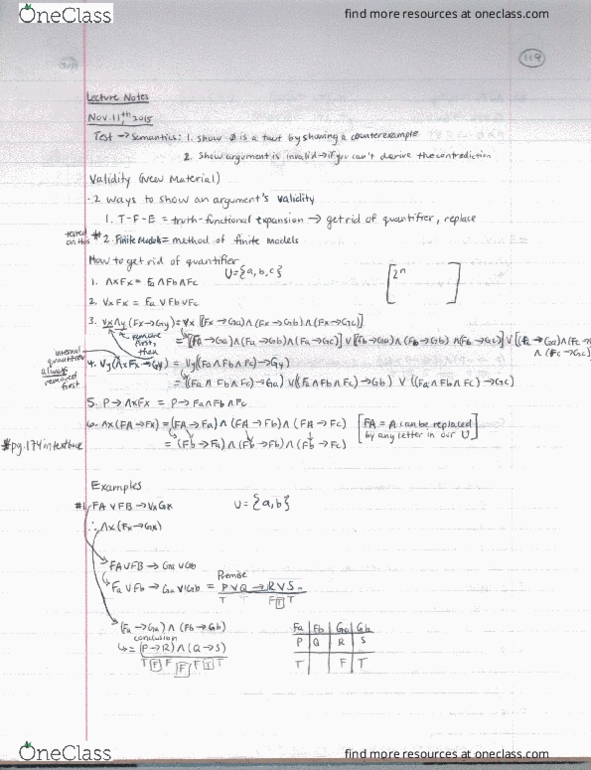 OneClass
find more resources at oneclass.com
119
Lecture Notes
Nov. 11,th 2015
Test → Semantics: 1. Show Ø is a taut by showing a counterexample
2. Show argument is invalid → if you can't derive the contradiction
Validity (New Material)
· 2 ways to show an argument's validity
1. T-F-E = truth-functional expansion → get rid of quantifier, replace
tested on this * 2. Finite Models = method of finite models
How to get rid of quantifier
U={a,b,c}
[2ⁿ ]
1. ΛxFx = Fa ΛFb ΛFc
2. VxFx = Fa V Fb V Fc
3. VxΛy(Fx→Gy) = Vx [(Fx→Ga)Λ(Fx→Gb)Λ(Fx→Gc)]
remove first, then
= [(Fa→Ga)Λ(Fa→Gb)Λ(Fa→Gc)] V [(Fb→Ga)Λ(Fb→Gb)Λ(Fb→Gc)] V [(Fc→Ga)Λ(Fc→
Λ (Fc→Gc)]
internal quantifier always removed first
4. Vy(ΛxFx→Gy) = Vy((FaΛFbΛFc)→Gy)
= ((FaΛFbΛFc)→Ga) V((FaΛFbΛFc)→Gb) V ((FaΛFbΛFc)→Gc)
5. P→ΛxFx = P→FaΛFbΛFc
6. Λx(FA→Fx) = (FA→Fa)Λ(FA→Fb)Λ(FA→Fc) [FA = A can be replaced by any letter in our U]
*pg.174 in textbook
= (Fb→Fa)Λ(Fb→Fb)Λ(Fb→Fc)
Examples
#1. FA V FB→VxGx
U={a,b}
∴Λx(Fx→Gx)
FA V FB→Ga V Gb
Premise
Fa V Fb→Ga V Gb = P V Q→R V S
T T F T
(Fa→Ga)Λ(Fb→Gb)
conclusion
= (P→R)Λ(Q→S)
T F F F T T T
Fa Fb Ga Gb
P Q R S
T F T
OneClass
find more resources at oneclass.com